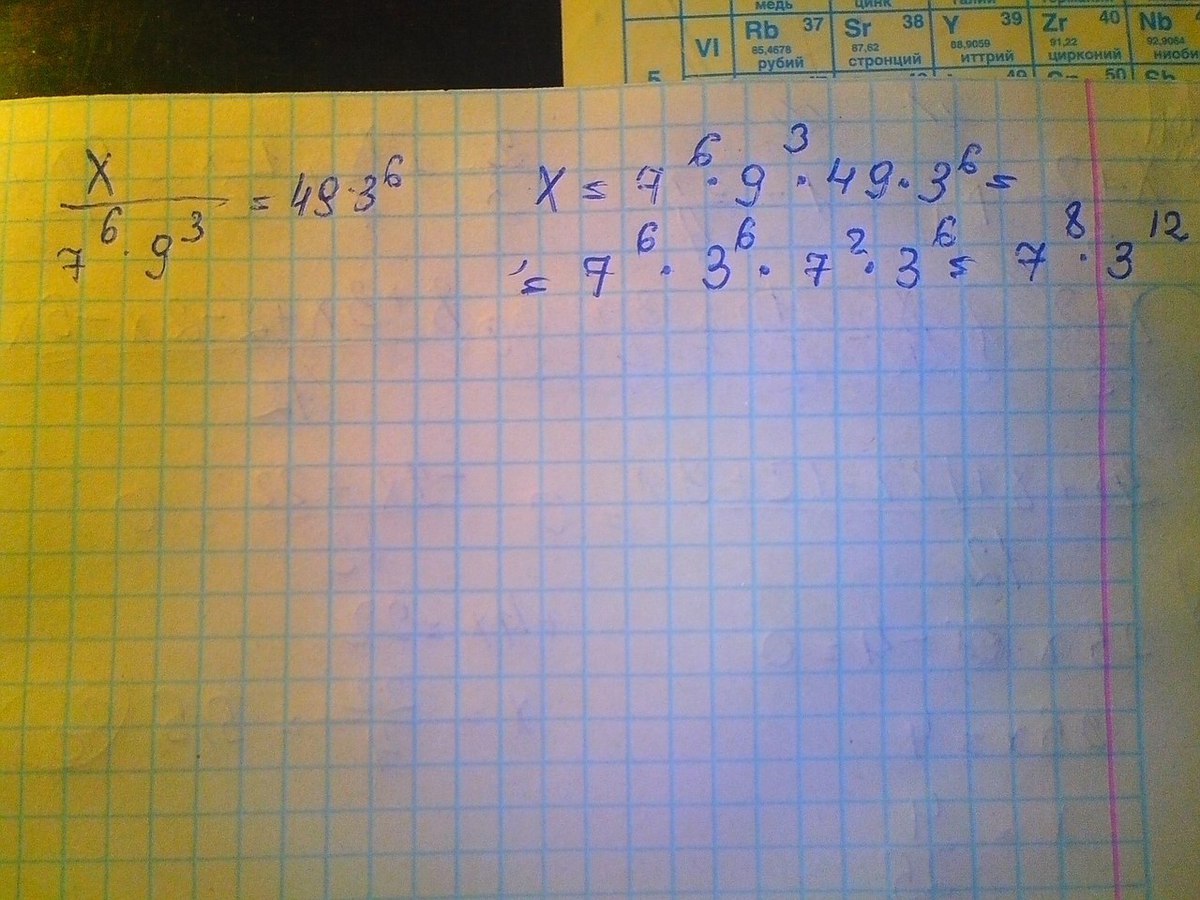 медь цинк
VI Rb 37 Sr 38 Y 39 Zr 40 Nb
85,4678 87,62 88,9059 91,22 92,9064
рубий стронций иттрий цирконий ниоби
5 49 50
X / 7^6 · 9^3 = 49·3^6
X = 7^6 · 9^3 · 49 · 3^6 =
= 7^6 · 3^6 · 7^2 · 3^6 = 7^8 · 3^12